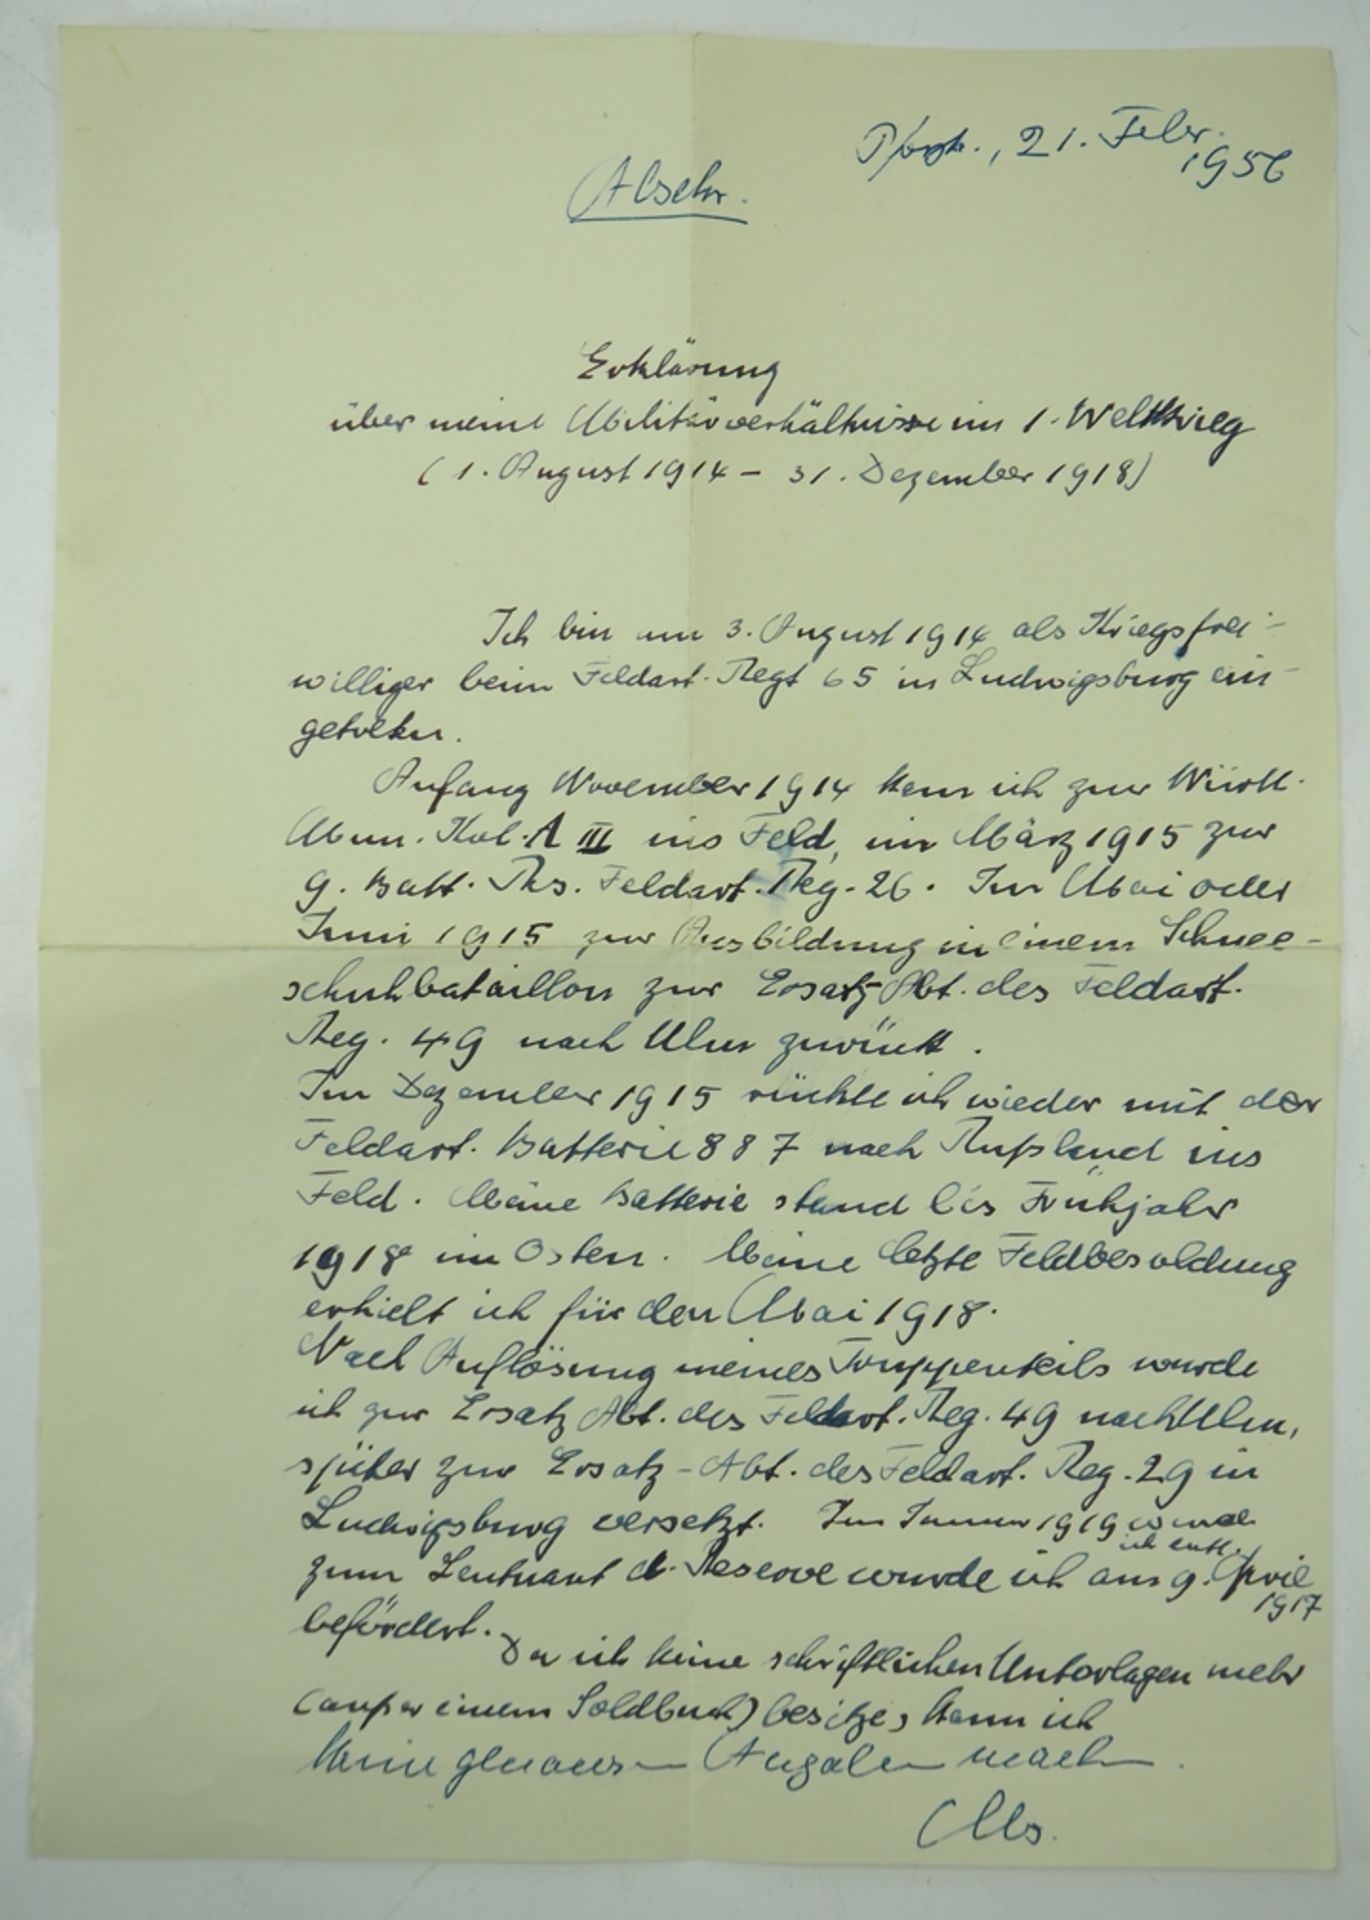 21. Febr.
1956
Abschr.
Erklärung
über meine Militärverhältnisse im 1. Weltkrieg
(1. August 1914 – 31. Dezember 1918)
Ich bin am 3. August 1914 als Kriegsfrei-
williger beim Feldart. Regt 65 in Ludwigsburg ein-
getreten.
Anfang November 1914 kam ich zur Württ.
Mun. Kol. A III ins Feld, im März 1915 zur
9. Batt. Res. Feldart. Reg. 26. Im Mai oder
Juni 1915 zur Ausbildung in einem Schnee-
schuhbataillon zur Ersatz-Abt. des Feldart.
Reg. 49 nach Ulm zurück.
Im Dezember 1915 rückte ich wieder mit der
Feldart. Batterie 887 nach Rußland ins
Feld. Meine Batterie stand bis Frühjahr
1918 im Osten. Meine letzte Feldbesoldung
erhielt ich für den Mai 1918.
Nach Auflösung meines Truppenteils wurde
ich zur Ersatz Abt. des Feldart. Reg. 49 nach Ulm,
später zur Ersatz-Abt. des Feldart. Reg. 29 in
Ludwigsburg versetzt. Im Januar 1919 wurde
ich entl.
zum Leutnant d. Reserve wurde ich am 9. April
1917
befördert.
Da ich keine schriftlichen Unterlagen mehr
(außer einem Soldbuch) besitze, kann ich
keine genauen Angaben machen.